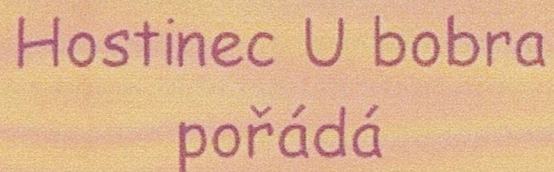 Hostinec U bobra
pořádá